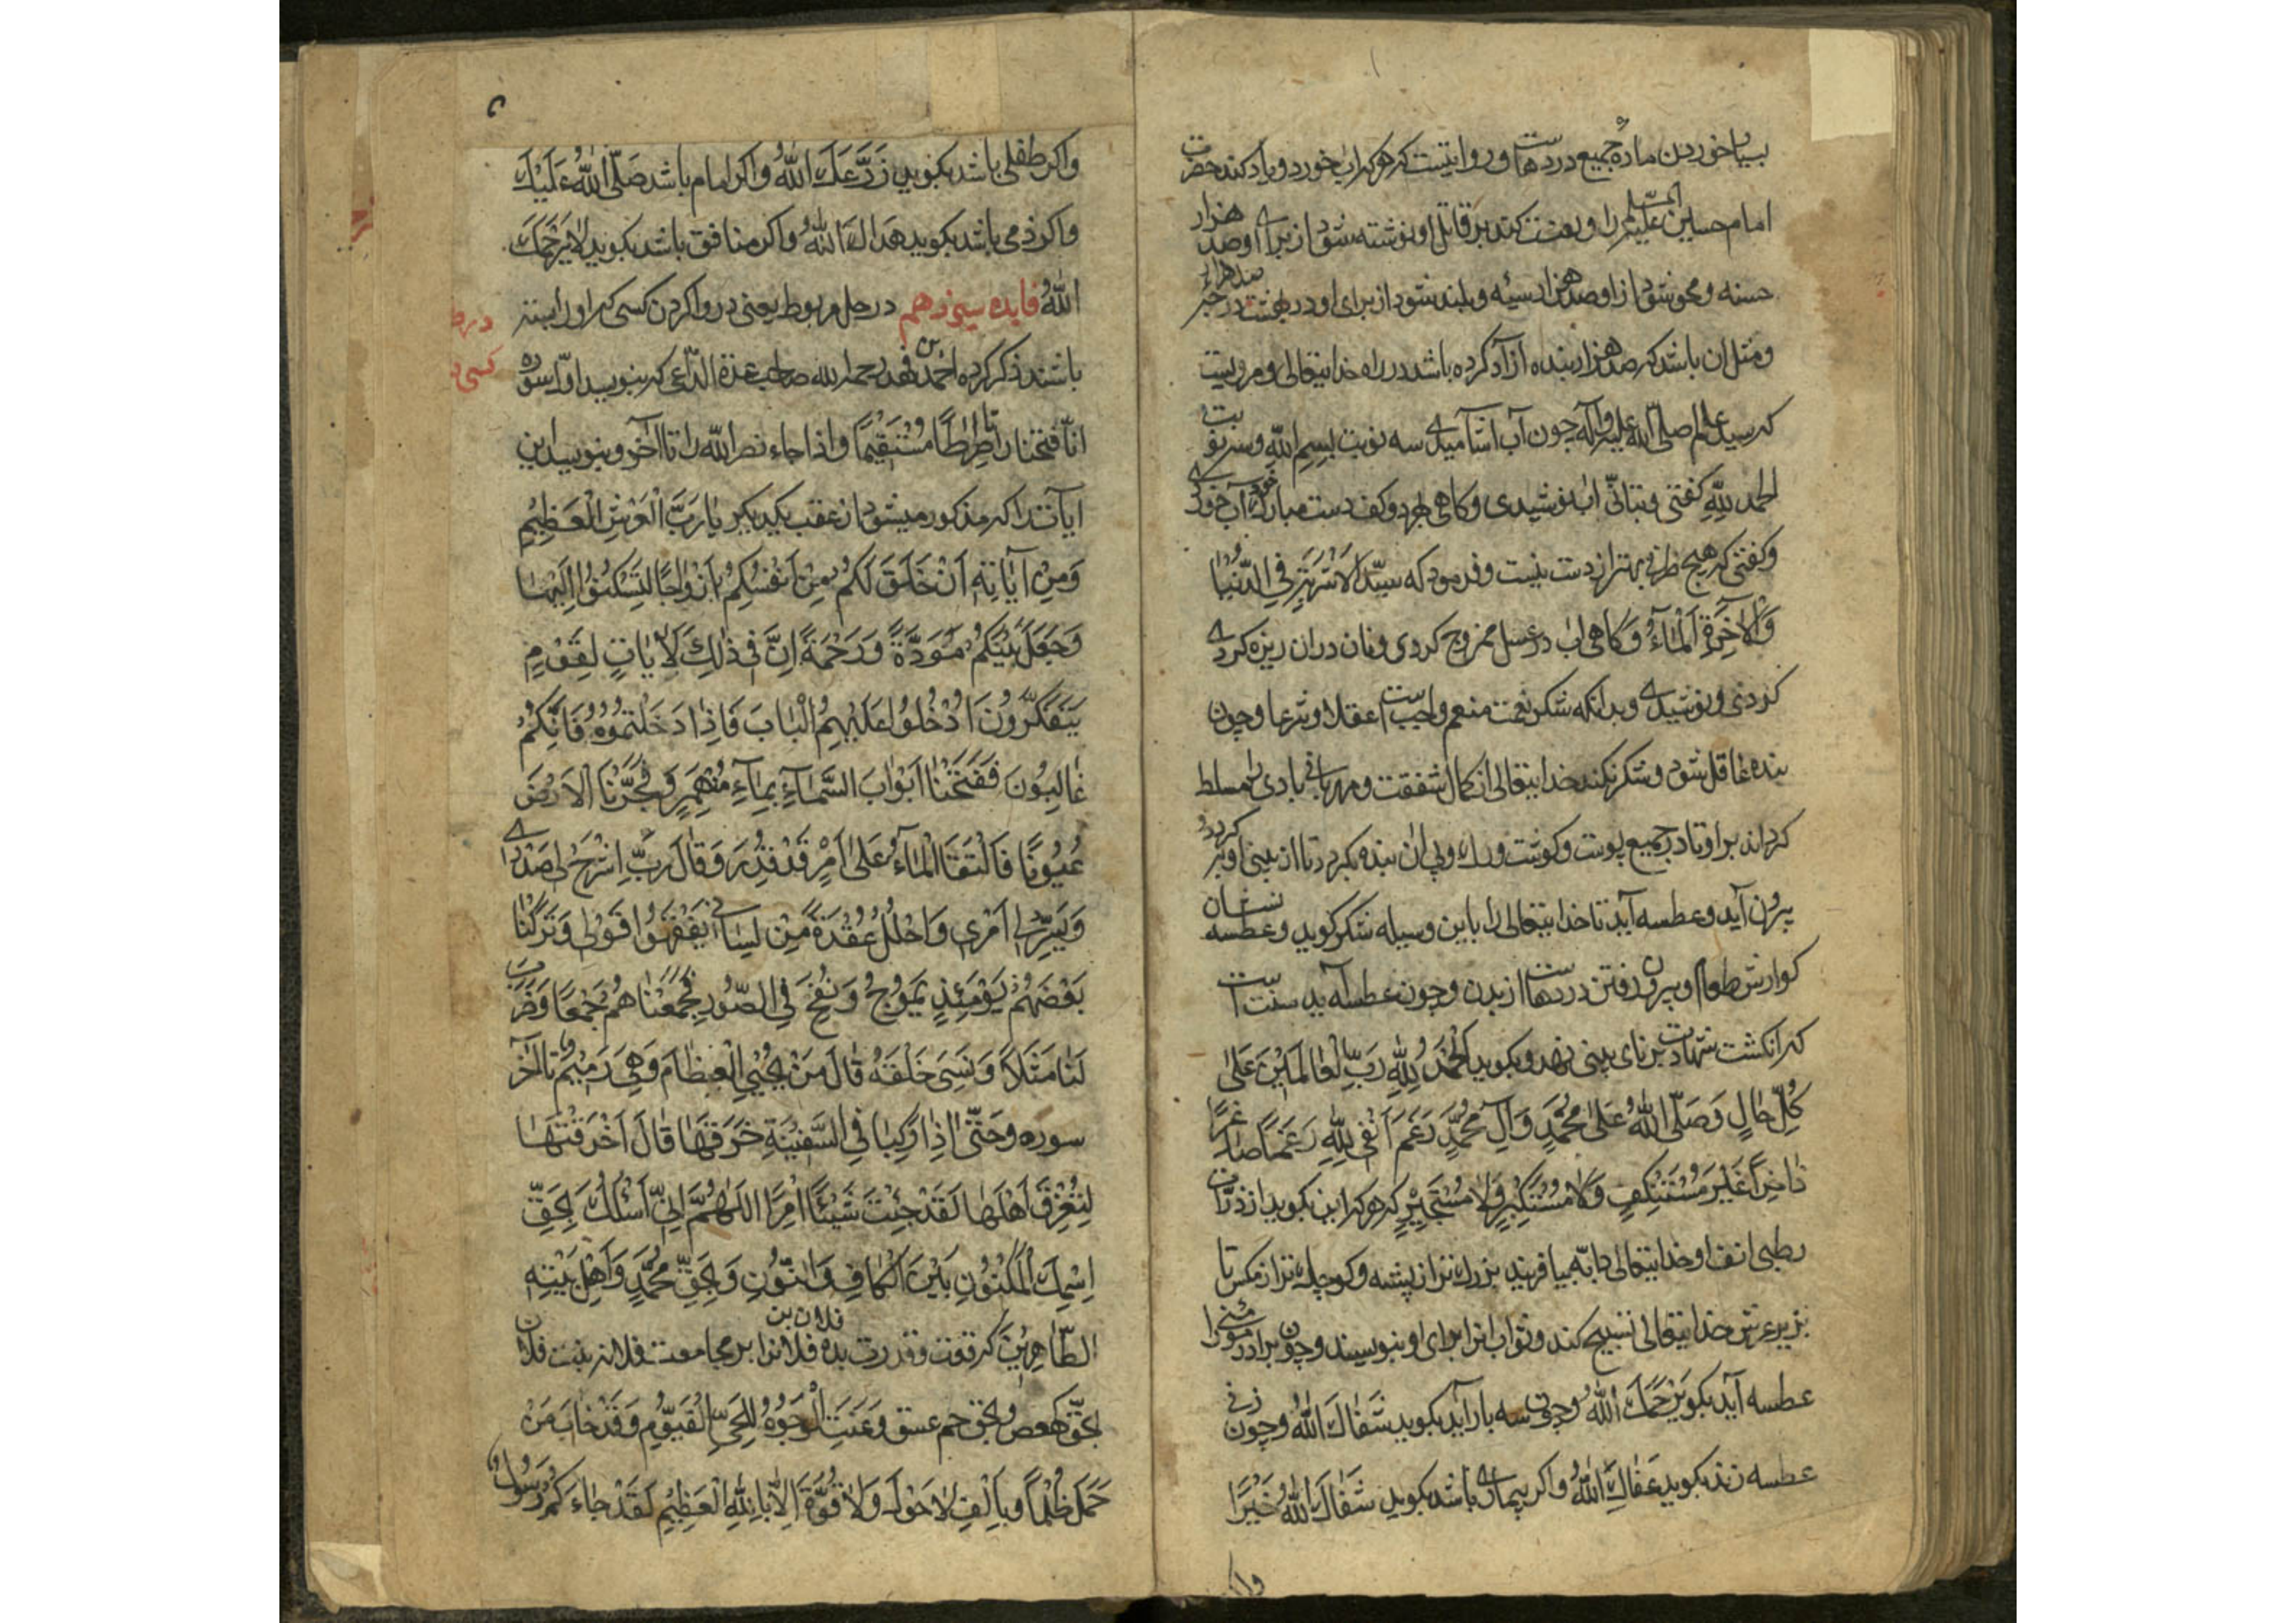 بسیار خوردن ماده جمیع دردهاست و روایتست که هر که اب خورد و یاد کند حضرت
امام حسین علیه السلم را و لعنت کند بر قاتل او نوشته شود از برای او صد هزار
حسنه و محو شود از او صد هزار سیئه و بلند شود از برای او در بهشت صد هزار درجه
و مثل ان باشد که صد هزار بنده ازاد کرده باشد در راه خدایتعالی و مرویست
که سید عالم صلی الله علیه وآله چون آب اشامیدی سه نوبت بسم الله و سه نوبت
الحمد لله گفتی و بتانّی اب نوشیدی و کاهی بهر دو کف دست مبارک خود آب خوردی
و کفتی که هیچ ظرفی بهتر از دست نیست و فرمود که سیّد الاشربة فی الدّنیا
والاخرة الماء و کاهی اب در عسل ممزوج کردی و نان دران ریزه کردی
کردی و نوشیدی و بدانکه شکر نعمت منعم واجبست عقلا و شرعا و چون
بنده غافل شود و شکر نکند خدایتعالی از کمال شفقت و مهربانی بادی را مسلط
کرداند بر او تا در جمیع پوست و کوشت ورک و پی ان بنده بکردد تا از بینی او
بیرون آید و عطسه آید تا خدایتعالی را باین وسیله شکر کوید و عطسه نشان
کوارش طعام و بیرون رفتن دردهاست از بدن و چون عطسه آید سنت است
که انکشت شهادت بر نای بینی نهد و بکوید الحمد لله ربّ العالمین علی
کلّ حال وصلّی الله علی محمّد وآل محمّد رغم انفی لله رغما صاغرا
داخرا غیر مستنکف ولا مستکبر ولا مستجیر که هر که این بکوید از
رطبی انف او خدایتعالی دابّه بیافریند بزرک تر از پشه و کوچک تر از مکس تا
بزیر عرش خدایتعالی تسبیح کند و ثواب انرا برای او بنویسند و چون برادر مؤمنی را
عطسه آید بکوید یرحمک الله و چون سه بار آید بکوید شفاک الله و چون زنی
عطسه زند بکوید عفاک الله و اکر بیماری باشد بکوید شفاک الله خیرا
واکر
۵
واکر طفلی باشد بکوید زرعک الله و اکر امام باشد صلّی الله علیک
واکر ذمی باشد بکوید هداک الله و اکر منافق باشد بکوید لا یرحمک
الله فایده سیزدهم در حل مربوط یعنی در وا کردن کسی که او را بسته
باشند ذکر کرده احمد بن فهد رحمه الله صاحب عدة الدّاعی که بنویسد اوّل سوره
انّا فتحنا را تا صراطا مستقیما و اذا جاء نصر الله را تا آخر و بنویسد این
ایاتند که مذکور میشود از عقب یکدیکر یا ربّ العرش العظیم
ومن آیاته ان خلق لکم من انفسکم ازواجا لتسکنوا الیها
وجعل بینکم مودّة ورحمة انّ فی ذلک لایات لقوم
یتفکّرون ادخلوا علیهم الباب فاذا دخلتموه فانّکم
غالبون ففتحنا ابواب السّماء بماء منهمر وفجّرنا الارض
عیونا فالتقا الماء علی امر قد قدر وقال ربّ اشرح لی صدری
ویسّر لی امری واحلل عقدة من لسانی یفقهوا قولی وترکنا
بعضهم یومئذ یموج ونفخ فی الصّور فجمعناهم جمعا وضرب
لنا مثلا ونسی خلقه قال من یحیی العظام وهی رمیم تا آخر
سوره وحتّی اذا رکبا فی السّفینة خرقها قال اخرقتها
لتغرق اهلها لقد جئت شیئا امرا اللهمّ انّی اسئلک بحقّ
اسمک المکنون بین الکاف والنّون وبحقّ محمّد واهل بیته
الطّاهرین که قوت و قدرت بده فلان بن فلانرا بر مجامعت فلانه بنت فلان
بحقّ کهعص وبحق حم عسق وعنت الوجوه للحیّ القیّوم وقد خاب من
حمل ظلما وبالف لا حول ولا قوّة الّا بالله العظیم لقد جاءکم رسول